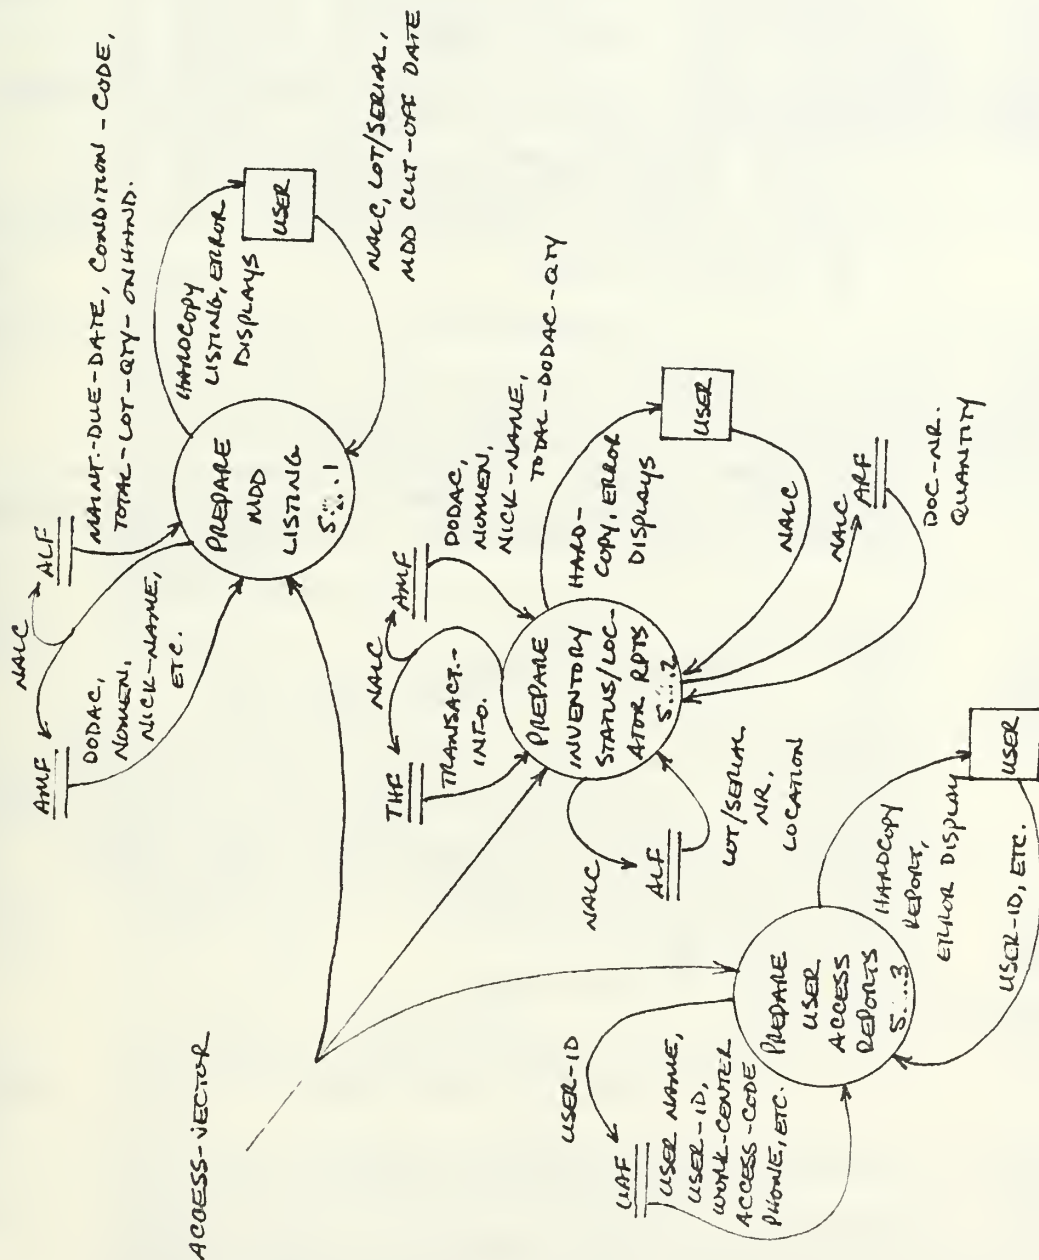 ACCESS-VECTOR
NALC
AMF
ALF
MAINT.-DUE-DATE, CONDITION-CODE,
TOTAL-LOT-QTY-ONHAND.
DODAC,
NOMEN,
NICK-NAME,
ETC.
PREPARE
MDD
LISTING
5....1
HARDCOPY
LISTING, ERROR
DISPLAYS
USER
NALC, LOT/SERIAL,
MDD CUT-OFF DATE
NALC
THF
AMF
TRANSACT.-
INFO.
DODAC,
NOMEN,
NICK-NAME,
TOTAL-DODAC-QTY
PREPARE
INVENTORY
STATUS/LOC-
ATOR RPTS
5....2
HARD-
COPY, ERROR
DISPLAYS
USER
NALC
NALC
ARF
DOC-NR.
QUANTITY
NALC
ALF
LOT/SERIAL
NR.
LOCATION
USER-ID
UAF
USER NAME,
USER-ID,
WORK-CENTER
ACCESS-CODE
PHONE, ETC.
PREPARE
USER
ACCESS
REPORTS
5....3
HARDCOPY
REPORT,
ERROR DISPLAY
USER
USER-ID, ETC.